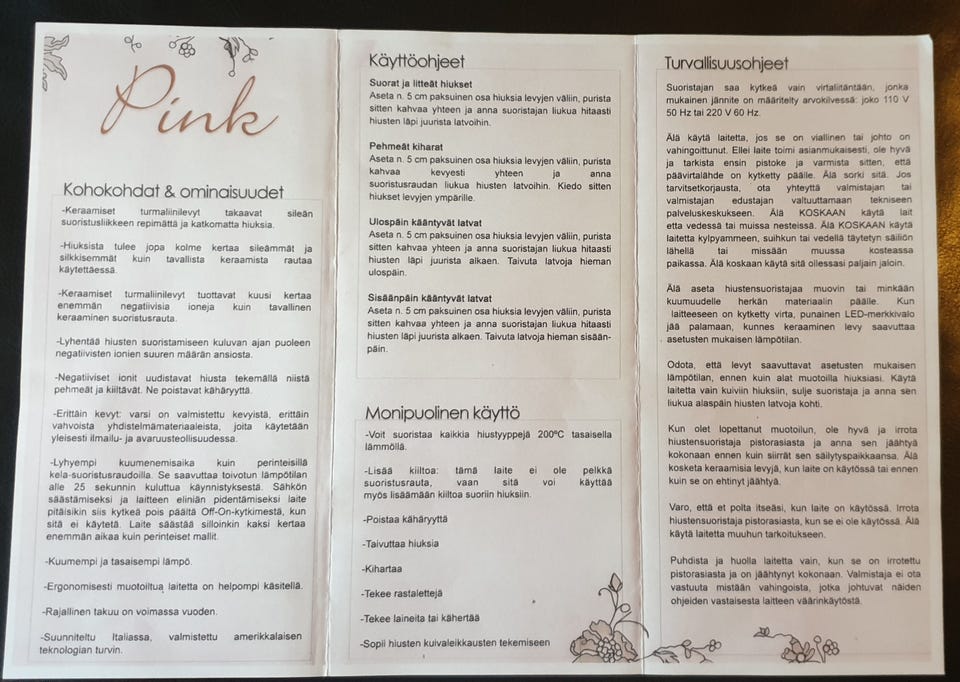 Pink
Kohokohdat & ominaisuudet
-Keraamiset turmaliinilevyt takaavat sileän
suoristusliikkeen repimättä ja katkomatta hiuksia.
-Hiuksista tulee jopa kolme kertaa sileämmät ja
silkkisemmät kuin tavallista keraamista rautaa
käytettäessä.
-Keraamiset turmaliinilevyt tuottavat kuusi kertaa
enemmän negatiivisia ioneja kuin tavallinen
keraaminen suoristusrauta.
-Lyhentää hiusten suoristamiseen kuluvan ajan puoleen
negatiivisten ionien suuren määrän ansiosta.
-Negatiiviset ionit uudistavat hiusta tekemällä niistä
pehmeät ja kiiltävät. Ne poistavat käháryyttä.
-Erittäin kevyt: varsi on valmistettu kevyistä, erittäin
vahvoista yhdistelmämateriaaleista, joita käytetään
yleisesti ilmailu- ja avaruusteollisuudessa.
-Lyhyempi kuumenemisaika kuin perinteisillä
kela-suoristusraudoilla. Se saavuttaa toivotun lämpötilan
alle 25 sekunnin kuluttua käynnistyksestä. Sähkön
säästämiseksi ja laitteen eliniän pidentämiseksi laite
pitäisikin siis kytkeä pois päältä Off-On-kytkimestä, kun
sitä ei käytetä. Laite säästää silloinkin kaksi kertaa
enemmän aikaa kuin perinteiset mallit.
-Kuumempi ja tasaisempi lämpö.
-Ergonomisesti muotoiltua laitetta on helpompi käsitellä.
-Rajallinen takuu on voimassa vuoden.
-Suunniteltu Italiassa, valmistettu amerikkalaisen
teknologian turvin.
Käyttöohjeet
Suorat ja litteät hiukset
Aseta n. 5 cm paksuinen osa hiuksia levyjen väliin, purista
sitten kahvaa yhteen ja anna suoristajan liukua hitaasti
hiusten läpi juurista latvoihin.
Pehmeät kiharat
Aseta n. 5 cm paksuinen osa hiuksia levyjen väliin, purista
kahvaa kevyesti yhteen ja anna
suoristusraudan liukua hiusten latvoihin. Kiedo sitten
hiukset levyjen ympärille.
Ulospäin kääntyvät latvat
Aseta n. 5 cm paksuinen osa hiuksia levyjen väliin, purista
sitten kahvaa yhteen ja anna suoristajan liukua hitaasti
hiusten läpi juurista alkaen. Taivuta latvoja hieman
ulospäin.
Sisäänpäin kääntyvät latvat
Aseta n. 5 cm paksuinen osa hiuksia levyjen väliin, purista
sitten kahvaa yhteen ja anna suoristajan liukua hitaasti
hiusten läpi juurista alkaen. Taivuta latvoja hieman sisään-
päin.
Monipuolinen käyttö
-Voit suoristaa kaikkia hiustyyppejä 200ºC tasaisella
lämmöllä.
-Lisää kiiltoa: tämä laite ei ole pelkkä
suoristusrauta, vaan sitä voi käyttää
myös lisäämään kiiltoa suoriin hiuksiin.
-Poistaa käháryyttä
-Taivuttaa hiuksia
-Kihartaa
-Tekee rastalettejä
-Tekee laineita tai kähertää
-Sopii hiusten kuivaleikkausten tekemiseen
Turvallisuusohjeet
Suoristajan saa kytkeä vain virtaliitäntään, jonka
mukainen jännite on määritelty arvokilvessä: joko 110 V
50 Hz tai 220 V 60 Hz.
Älä käytä laitetta, jos se on viallinen tai johto on
vahingoittunut. Ellei laite toimi asianmukaisesti, ole hyvä
ja tarkista ensin pistoke ja varmista sitten, että
päävirtalähde on kytketty päälle. Älä sorki sitä. Jos
tarvitsetkorjausta, ota yhteyttä valmistajan tai
valmistajan edustajan valtuuttamaan tekniseen
palveluskeskukseen. Älä KOSKAAN käytä lait
etta vedessä tai muissa nesteissä. Älä KOSKAAN käytä
laitetta kylpyammeen, suihkun tai vedellä täytetyn säiliön
lähellä tai missään muussa kosteassa
paikassa. Älä koskaan käytä sitä ollessasi paljain jaloin.
Älä aseta hiustensuoristajaa muovin tai minkään
kuumuudelle herkän materiaalin päälle. Kun
laitteeseen on kytketty virta, punainen LED-merkkivalo
jää palamaan, kunnes keraaminen levy saavuttaa
asetusten mukaisen lämpötilan.
Odota, että levyt saavuttavat asetusten mukaisen
lämpötilan, ennen kuin alat muotoilla hiuksiasi. Käytä
laitetta vain kuiviin hiuksiin, sulje suoristaja ja anna sen
liukua alaspäin hiusten latvoja kohti.
Kun olet lopettanut muotoilun, ole hyvä ja irrota
hiustensuoristaja pistorasiasta ja anna sen jäähtyä
kokonaan ennen kuin siirrät sen säilytyspaikkaansa. Älä
kosketa keraamisia levyjä, kun laite on käytössä tai ennen
kuin se on ehtinyt jäähtyä.
Varo, että et polta itseäsi, kun laite on käytössä. Irrota
hiustensuoristaja pistorasiasta, kun se ei ole käytössä. Älä
käytä laitetta muuhun tarkoitukseen.
Puhdista ja huolla laitetta vain, kun se on irrotettu
pistorasiasta ja on jäähtynyt kokonaan. Valmistaja ei ota
vastuuta mistään vahingoista, jotka johtuvat näiden
ohjeiden vastaisesta laitteen väärinkäytöstä.